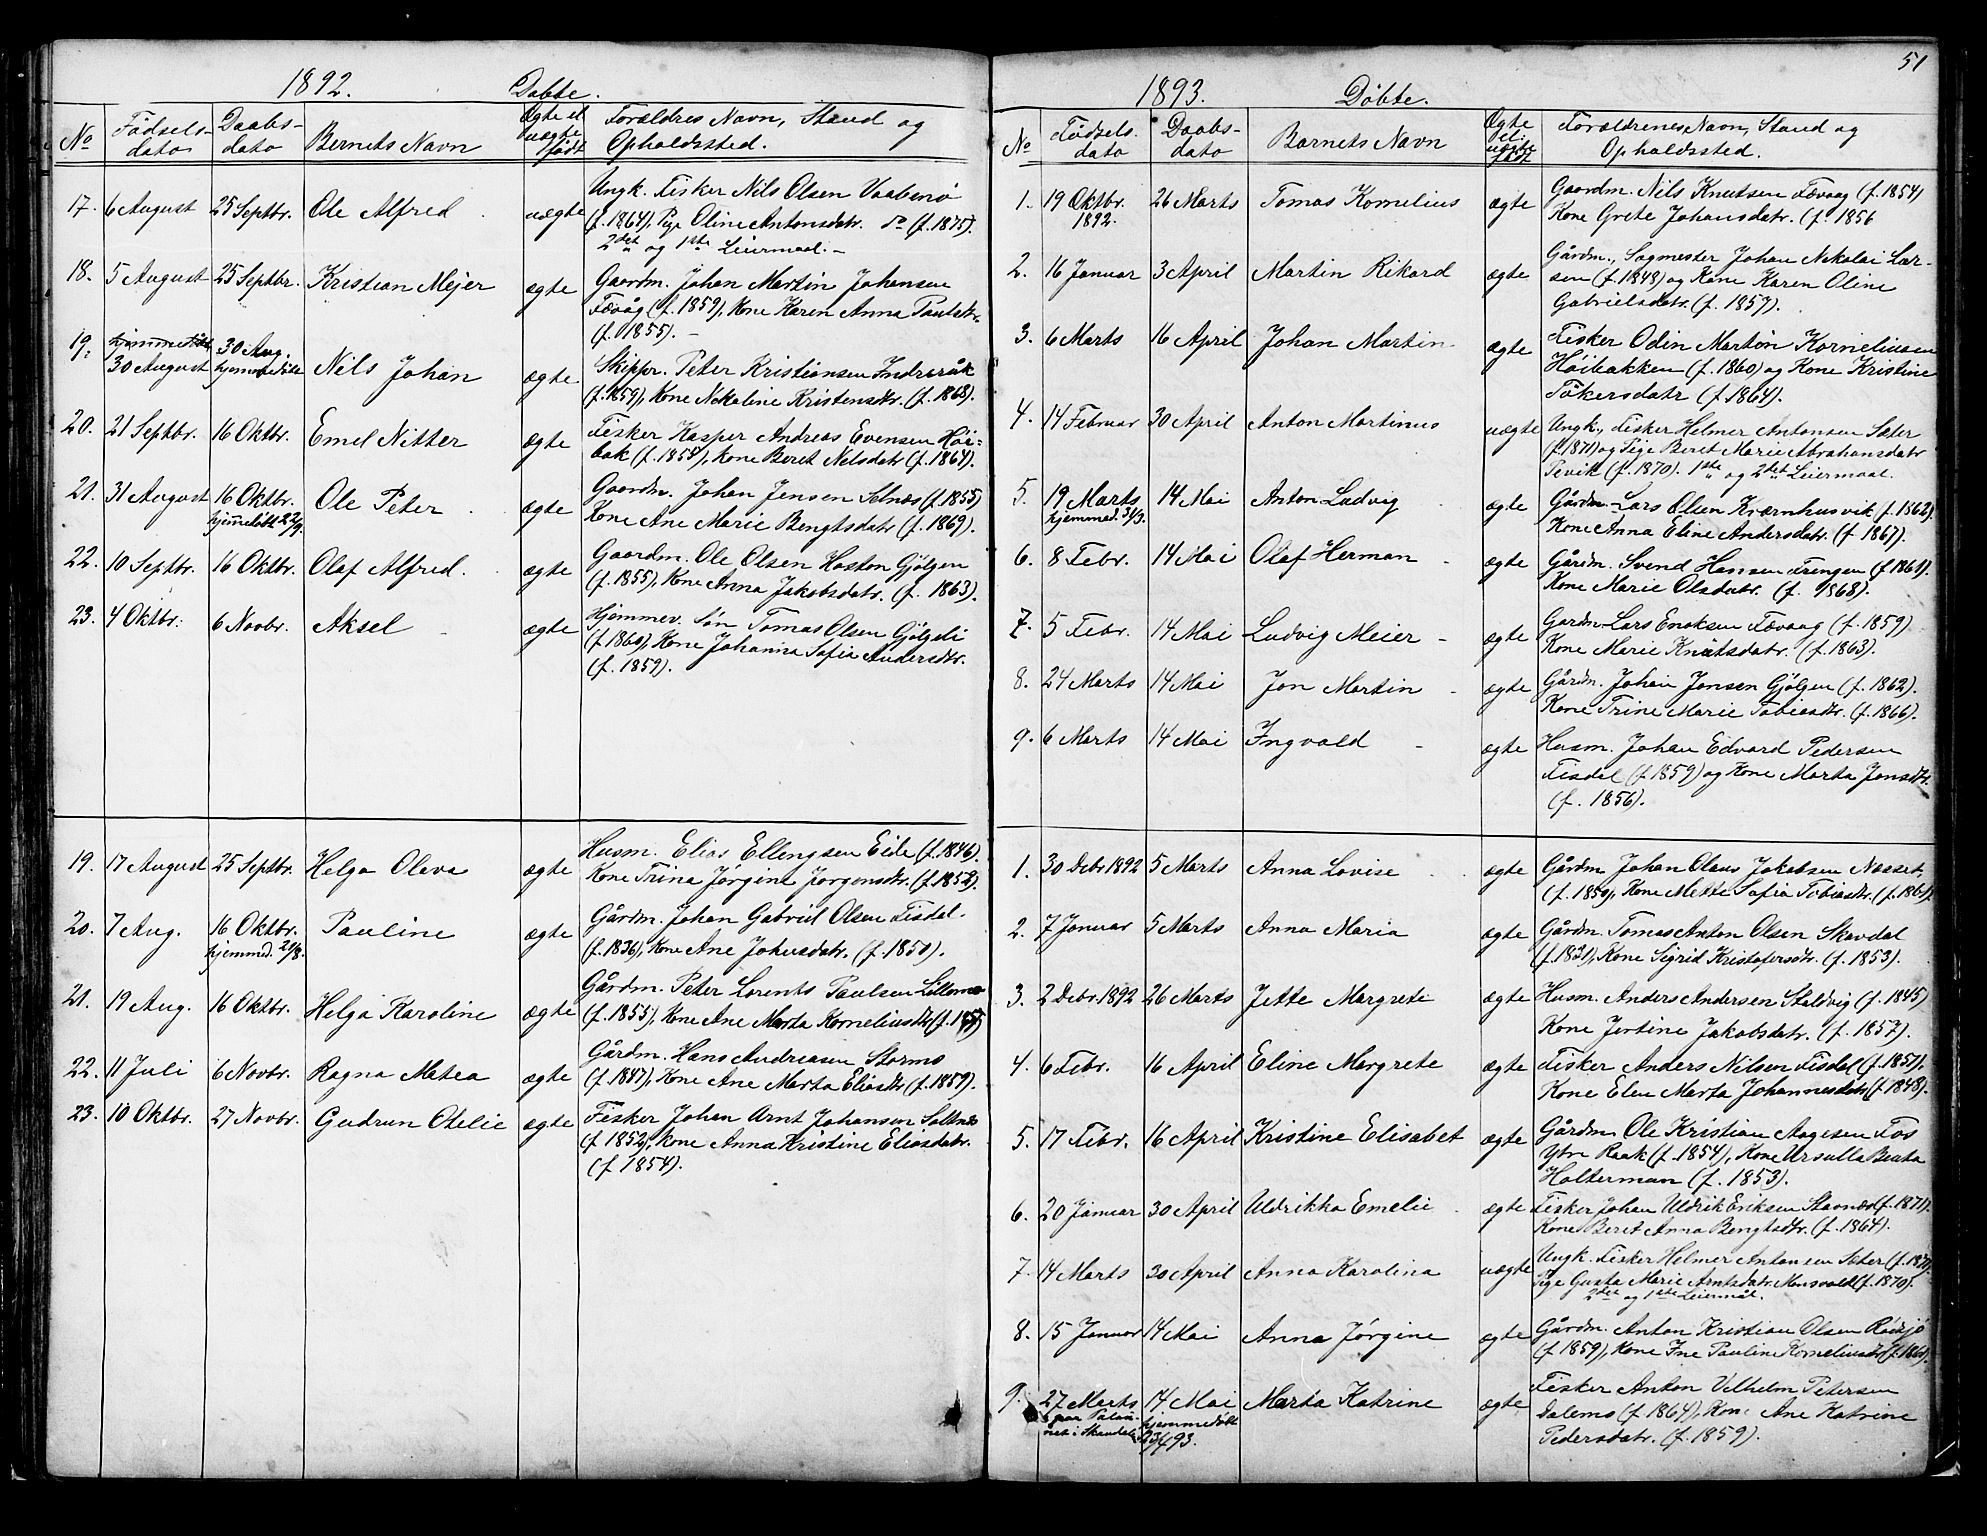 1892. Døbte.
No Fødsels- Daabs- Barnets Navn Ægte el. Forældres Navn, Stand og
dato dato uægte født Opholdssted.
17. 6 August 25 Septbr. Ole Alfred uægte Ungk. Fisker Nils Olsen Vaabenø
(f. 1864), Pige Oline Antonsdatr. do (f. 1875).
2det og 1ste Leiermaal. -
18. 5 August 25 Septbr. Kristian Mejer ægte Gaardm. Johan Martin Johansen
Fævåg (f. 1859), Kone Karen Anna Paulsdtr.
(f. 1855). -
19. 30 August 30 Aug. hjemmedøbt Nils Johan ægte Skippr. Peter Kristiansen
(f. 1859), Kone Nekoline Kristensdtr. (f. 1868).
20. 21 Septbr. 16 Oktbr. Emel Nitter ægte Fisker Kasper Andreas Evensen Høi-
bak (f. 1854), Kone Beret Nelsdatr (f. 1864).
21. 31 August 16 Oktbr. Ole Peter ægte Gaardm. Johan Jensen Selnæs (f. 1855)
hjemedøbt 22/9. Kone Ane Marie Bengtsdatr (f. 1869).
22. 10 Septbr. 16 Oktbr. Olaf Alfred. ægte Gaardm. Ole Olsen Haston Gjølgen
(f. 1855), Kone Anna Jakobsdatr. (f. 1863).
23. 4 Oktbr. 6 Novbr. Aksel ægte Hjemmev. Søn Tomas Olsen Gjølgeli
(f. 1860), Kone Johanna Sofia Andersdtr.
(f. 1859).
19. 17 August 25 Septbr. Helga Oleva ægte Husm. Elias Ellengsen Eide (f. 1846).
Kone Trina Jørgine Jørgensdtr. (f. 1852).
20. 7 Aug. 16 Oktbr. Pauline ægte Gårdm. Johan Gabriel Olsen Fisdal.
hjemmed. 21/8. (f. 1836), Kone Ane Johnsdatr. (f. 1850).
21. 19 Aug. 16 Oktbr. Helga Karoline ægte Gårdm. Peter Lorents Paulsen Lillemo
(f. 1855), Kone Ane Marta Korneliusdtr (f. 1857)
22. 11 Juli 6 Novbr. Ragna Matea ægte Gårdm. Hans Andreasen Stormo
(f. 1847), Kone Ane Marta Eliasdtr (f. 1859).
23. 10 Oktbr. 27 Novbr. Gudrun Otelie ægte Fisker Johan Arnt Johansen Saltnes
(f. 1852), Kone Anna Kristine Eliasdatr.
(f. 1854).
51
1893. Døbte.
No Fødsels- Daabs- Barnets Navn Ægte el. Forældrenes Navn, Stand og
dato dato uægte født Opholdssted.
1. 19 Oktbr. 26 Marts Tomas Kornelius ægte Gaardm. Nils Knutsen Fævaag (f. 1854)
1892. Kone Grete Johansdatr. (f. 1856
2. 16 Januar 3 April Martin Rikard ægte Gårdm., Sagmester Johan Nekolai Lar-
sen (f. 1848) og Kone Karen Oline
Gabrielsdatr. (f. 1857).
3. 6 Marts 16 April Johan Martin ægte Fisker Odin Martin Korneliusen
Høibakken (f. 1860) og Kone Kristine
Fökersdatr (f. 1864).
4. 14 Februar 30 April Anton Martinus uægte Ungk., Fisker Helmer Antonsen Sæter
(f. 1871) og Pige Beret Marie Abrahamsdatr
Pevik (f. 1870). 1ste og 2det Leiermaal.
5. 19 Marts 14 Mai Anton Ludvig ægte Gårdm. Lars Olsen Kværnhusvik (f. 1862).
hjemmed. 31/3. Kone Anna Eline Andersdatr. (f. 1867).
6. 8 Febr. 14 Mai Olaf Herman ægte Gårdm. Svend Hansen Frengen (f. 1861).
Kone Marie Olsdatr. (f. 1868).
7. 5 Febr. 14 Mai Ludvig Meier ægte Gardm. Lars Enoksen Fævaag (f. 1859)
Kone Marie Knutsdatr. (f. 1863).
8. 24 Marts 14 Mai Jon Martin ægte Gårdm. Johan Jonsen Gjølgen (f. 1862).
Kone Trine Marie Tobiasdtr. (f. 1866).
9. 6 Marts 14 Mai Ingvald ægte Husm. Johan Edvard Pedersen
Fisdal (f. 1859) og Kone Marta Jonsdtr.
(f. 1856).
1. 30 Debr 1892 5 Marts Anna Lovise ægte Gårdm Johan Olaus Jakobsen Næsset,
(f. 1859), Kone Mette Sofia Tobiasdtr. (f. 1861).
2. 7 Januar 5 Marts Anna Maria ægte Gårdm. Tomas Anton Olsen Skavdal
(f. 1851), Kone Sigrid Kristofersdtr. (f. 1853).
3. 2 Debr. 1892 26 Marts Jette Margrete ægte Husm. Anders Andersen Staldvig (f. 1845)
Kone Jertine Jakobsdatr. (f. 1857).
4. 6 Febr. 16 April Eline Margrete ægte Fisker Anders Nilsen Fisdal (f. 1857),
Kone Elen Marta Johannesdatr (f. 1848).
5. 17 Febr. 16 April Kristine Elisabet ægte Gårdm. Ole Kristian Aagesen Fos
Ytre Raak (f. 1854), Kone Ursulla Beata
Holterman (f. 1853).
6. 20 Januar 30 April Uldrikka Emelie ægte Fisker Johan Uldrik Eriksen Stavnæs (f. 1871).
Kone Beret Anna Bengtsdtr. (f. 1864).
7. 14 Marts 30 April Anna Karolina uægte Ungk. Fisker Helmer Antonsen Seter (f. 1871),
Pige Gusta Marie Arntsdatr. Mansvold (f. 1870).
2det og 1ste Leiermål.
8. 15 Januar 14 Mai Anna Jørgine ægte Gårdm. Anton Kristian Olsen Rødsjø
(f. 1859), Kone Ine Pauline Korneliusdtr (f. 1861).
9. 27 Marts 14 Mai Marta Katrine ægte Fisker Anton Velhelm Petersen
hjemmedøbt Dalemo (f. 1864), Kone Ane Katrine
Pedersdatr. (f. 1859).